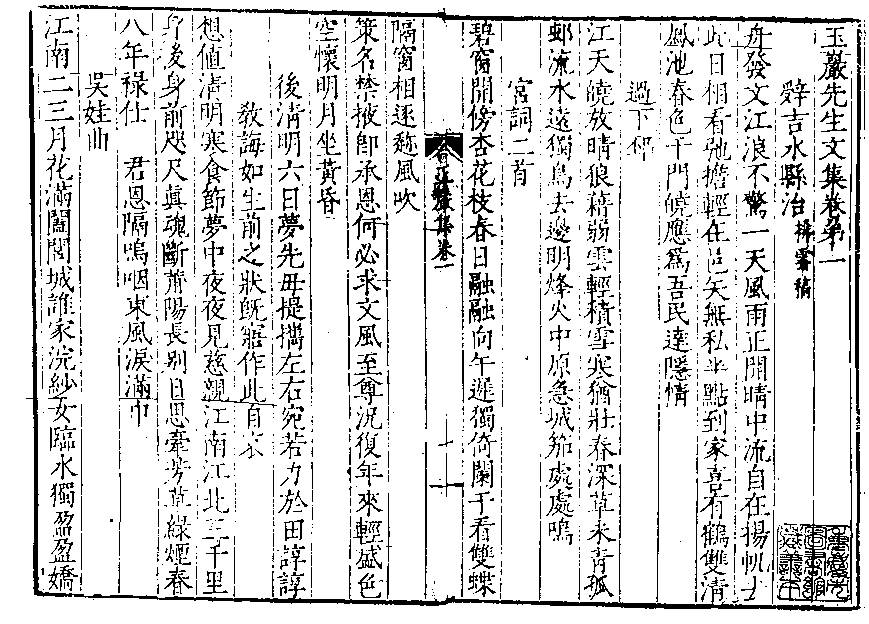 玉巖先生文集卷第一
辭吉水縣治
舟發文江浪不驚一天風雨正開晴中流自在揚帆去
此日相看弛擔輕在邑矢無私半點到家喜有鶴雙清
鳳池春色千門曉應爲吾民達隱情
過下邳
江天曉放晴狼藉弱雲輕積雪寒猶壯春深草未青孤
邨流水遠獨鳥去邊明烽火中原急城笳處處鳴
宮詞二首
碧窗開傍杏花枝春日融融向午遲獨倚闌干看雙蝶
隔窗相逐趂風吹
策名禁掖卽承恩何必求文風至尊況復年來輕盛色
空懷明月坐黃昏
後淸明六日夢先母提攜左右宛若力於田諄諄
敎誨如生前之狀旣寤作此自哀
想値淸明寒食節夢中夜夜見慈親江南江北三千里
身後身前咫尺眞魂斷蕭陽長別日思牽芳草綠煙春
八年祿仕 君恩隔嗚咽東風淚滿巾
吳娃曲
江南二三月花滿闔閭城誰家浣紗女臨水獨盈盈嬌